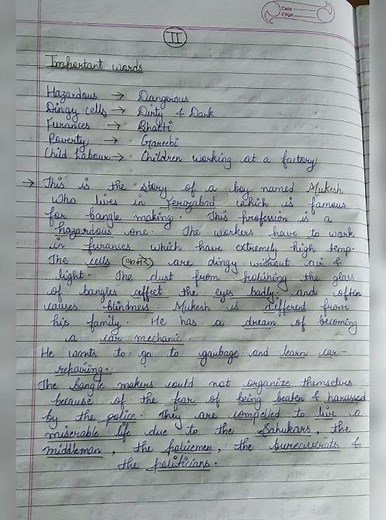 Date
Page
II
Important words
Hazardous → Dangerous
Dingy cells → Dirty & Dark
Furances → Bhatti
Poverty → Gareebi
Child Labour → Children working at a factory
→ This is the story of a boy named Mukesh
who lives in Feruzabad which is famous
for bangle making. This profession is a
hazardous one. The workers have to work
in furances which have extremely high temp.
The cells are dingy without air &
light. The dust from polishing the glass
of bangles affect the eyes badly and often
causes blindness. Mukesh is different from
his family. He has a dream of becoming
a car mechanic.
He wants to go to gaubage and learn car-
repairing.
The bangle makers could not organize themselves
because of the fear of being beaten & harassed
by the police. They are compelled to live a
miserable life due to the Sahukars, the
middleman, the policemen, the bureaucrats &
the politicians.